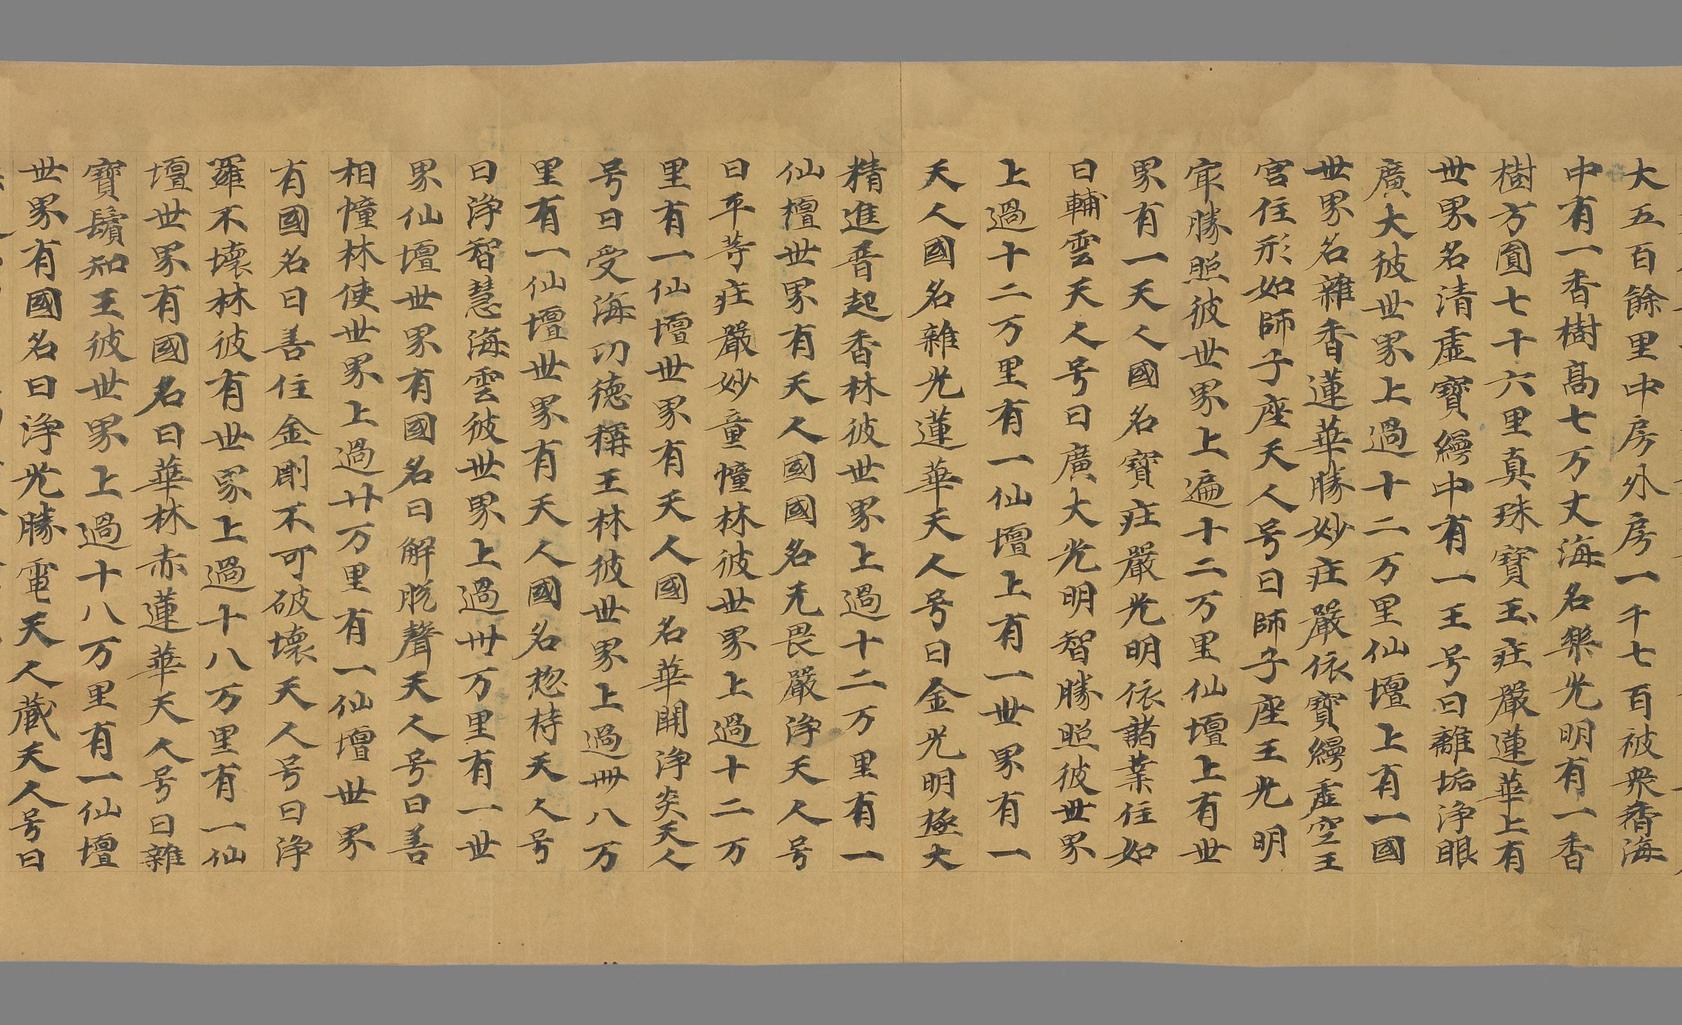 大五百餘里中房外房一千七百被眾香海
中有一香樹高七万丈海名樂光明有一香
樹方圓七千六里真珠寶玉庄嚴蓮華上有
世界名清虛寶繩中有一王号曰離垢淨眼
廣大彼世界上過十二万里仙壇上有一國
世界名雜香蓮華勝妙庄嚴依寶繩虛空王
宮住形如師子座天人号曰師子座王光明
㝡勝照彼世界上遍十二万里仙壇上有世
界有一天人國名寶庄嚴光明依諸業住如
曰輔雲天人号曰廣大光明智勝照彼世界
上過十二万里有一仙壇上有一世界有一
天人國名雜光蓮華天人号曰金光明極大
精進普起香林彼世界上過十二万里有一
仙檀世界有天人國國名无畏嚴淨天人号
曰平等庄嚴妙童幢林彼世界上過十二万
里有一仙壇世界有天人國名華開淨炎天人
号曰受海功德稱王林彼世界上過卌八万
里有一仙壇世界有天人國名惣持天人号
曰淨智慧海雲彼世界上過卅万里有一世
界仙壇世界有國名曰解脱聲天人号曰善
相幢林使世界上過廿万里有一仙壇世界
有國名曰善住金剛不可破壞天人号曰淨
羅不壞林彼有世界上過十八万里有一仙
壇世界有國名曰華林赤蓮華天人号曰雜
寶鬚知王彼世界上過十八万里有一仙壇
世界有國名曰淨光勝電天人藏天人号曰